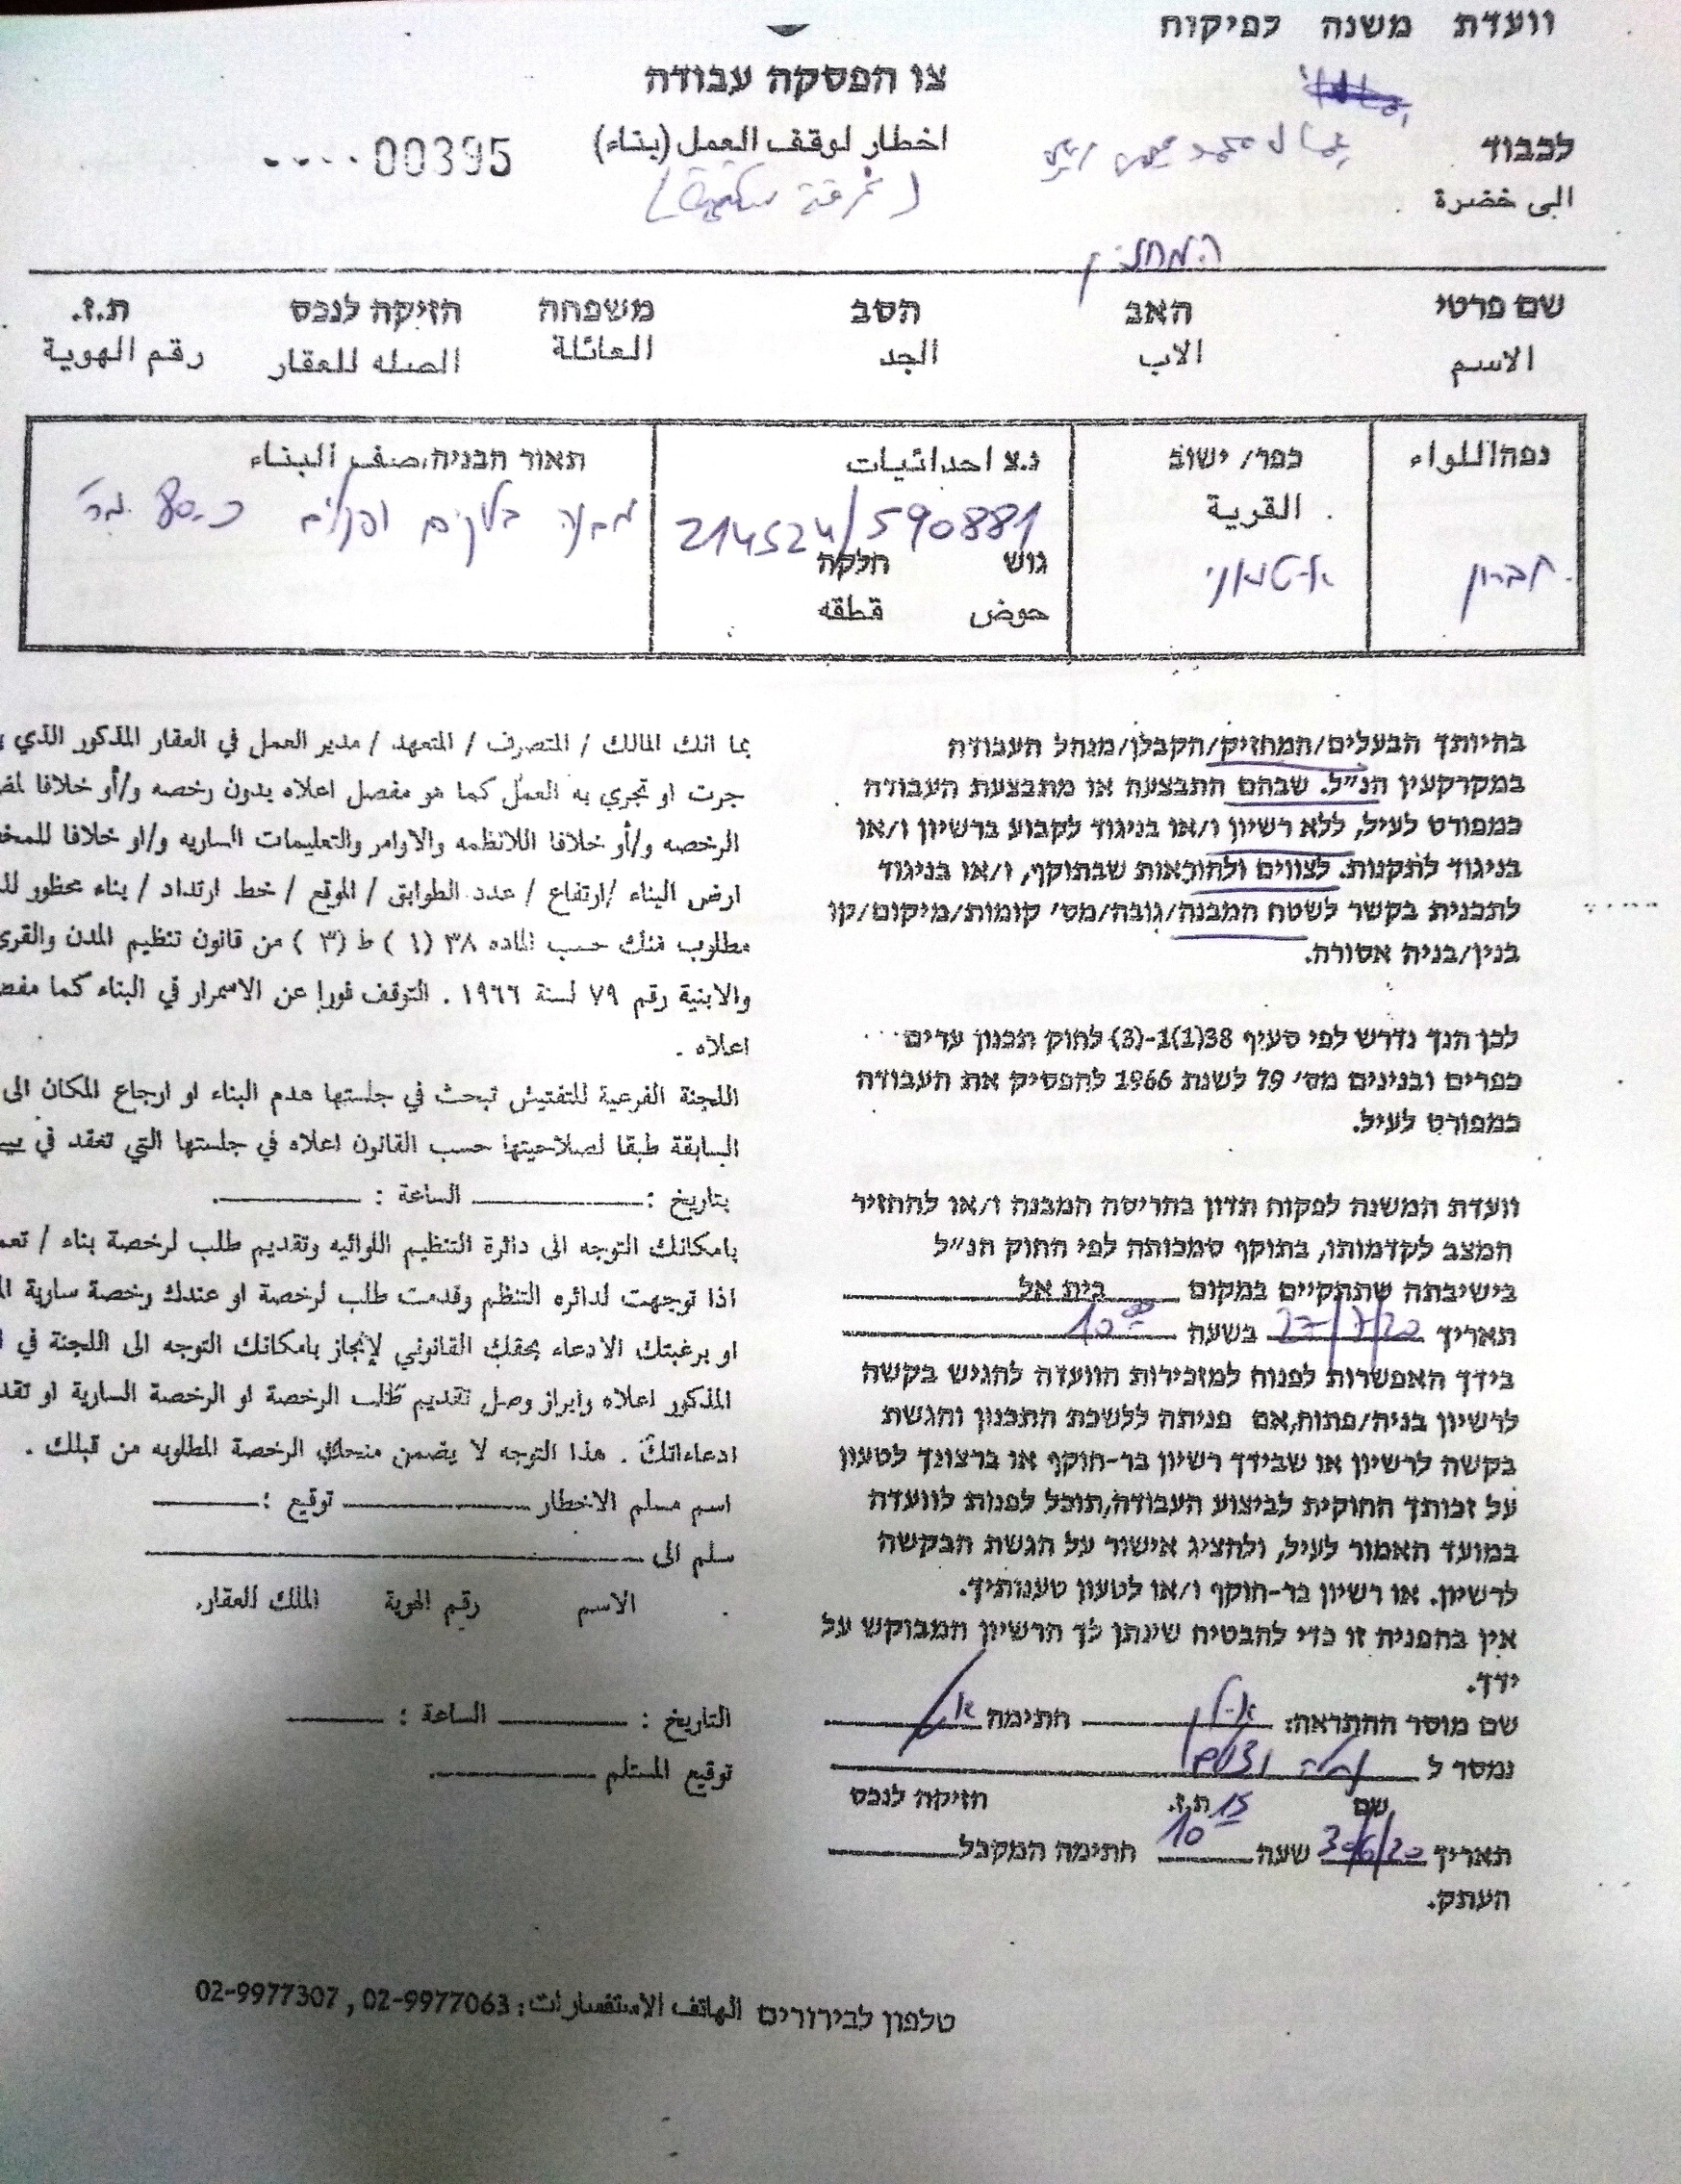 וועדת משנה לפיקוח
צו הפסקה עבודה
اخطار لوقف العمل (بناء)
(غرفة سكنية)
00395
לכבוד
محمد
الى خضرة
המחזיק
שם פרטי האב הסב משפחה הזיקה לנכס ת.ז.
الاسم الاب الجد العائلة الصله للعقار رقم الهوية
נפה/اللواء
חברון
כפר/ ישוב
القرية
נ.צ احداثيات
214524/590881
גוש חלקה
حوض قطقه
תאור הבניה/صف البناء
מבנה בלוקים ופנלים כ-80 מ"ר
בהיותך הבעלים/המחזיק/הקבלן/מנהל העבודה
במקרקעין הנ״ל. שבהם התבצעה או מתבצעת העבודה
כמפורט לעיל, ללא רשיון ו/או בניגוד לקבוע ברשיון ו/או
בניגוד לתקנות. לצווים ולהוראות שבתוקף, ו/או בניגוד
לתכנית בקשר לשטח המבנה/גובה/מס׳ קומות/מיקום/קו
בנין/בניה אסורה.
לכן הנך נדרש לפי סעיף 38(1)1-(3) לחוק תכנון ערים
כפרים ובנינים מס׳ 79 לשנת 1966 להפסיק את העבודה
כמפורט לעיל.
וועדת המשנה לפקוח תדון בהריסה המבנה ו/או להחזיר
המצב לקדמותו, בתוקף סמכותה לפי החוק הנ״ל
בישיבתה שתתקיים במקום בית אל
תאריך 27/7/20 בשעה 10:00
בידך האפשרות לפנות למזכירות הוועדה להגיש בקשה
לרשיון בניה/פתוח,אם פניתה ללשכת התכנון והגשת
בקשה לרשיון או שבידך רשיון בר-תוקף או ברצונך לטעון
על זכותך החוקית לביצוע העבודה,תוכל לפנות לוועדה
במועד האמור לעיל, ולהציג אישור על הגשת הבקשה
לרשיון. או רשיון בר-תוקף ו/או לטעון טענותיך.
אין בהפניה זו כדי להבטיח שינתן לך הרשיון המבוקש על
ידך.
שם מוסר ההתראה: חתימה
נמסר ל
שם ת.ז. זיקה לנכס
תאריך 30/6/20 שעה 10:15 חתימה המקבל
העתק.
بما انك المالك / المتصرف / المتعهد / مدير العمل في العقار المذكور الذي
جرت او تجري به العمل كما هو مفصل اعلاه بدون رخصه و/أو خلافا
الرخصه و/أو خلافا اللانظمه والاوامر والتعليمات الساريه و/او خلافا
ارض البناء /ارتفاع / عدد الطوابق / الموقع / خط ارتداد / بناء محظور
مطلوب منك حسب الماده ٣٨ (١) ط (٣) من قانون تنظيم المدن والقرى
والابنية رقم ٧٩ لسنة ١٩٦٦ . التوقف فورا عن الاسمرار في البناء كما
اعلاه .
اللجنة الفرعية للتفتيش تبحث في جلستها هدم البناء او ارجاع المكان الى
السابقة طبقا لصلاحيتها حسب القانون اعلاه في جلستها التي تعقد في
بتاريخ : الساعة :
بامكانك التوجه الى دائرة التنظيم اللوائيه وتقديم طلب لرخصة بناء /
اذا توجهت لدائره التنظم وقدمت طلب لرخصة او عندك رخصة سارية
او برغبتك الادعاء بحقك القانوني لإنجاز بامكانك التوجه الى اللجنة في
المذكور اعلاه وابراز وصل تقديم طلب الرخصة او الرخصة السارية او
ادعاءاتك . هذا التوجه لا يضمن منحك الرخصة المطلوبه من قبلك .
اسم مسلم الاخطار توقيع :
سلم الى
الاسم رقم الهوية الملك للعقار.
التاريخ : الساعة :
توقيع المستلم
טלפון לבירורים الهاتف الاستفسارات: 02-9977063 , 02-9977307